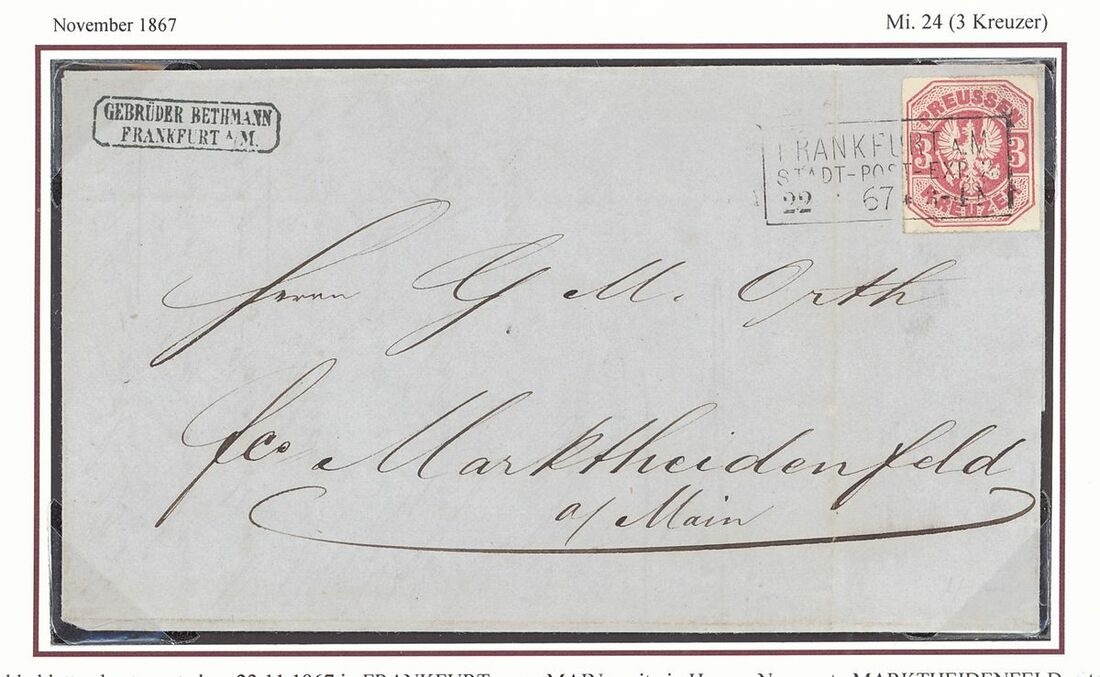 November 1867
Mi. 24 (3 Kreuzer)
GEBRÜDER BETHMANN
FRANKFURT a/M.
PREUSSEN
3 3
KREUZER
FRANKFURT A.M.
STADT-POST-EXP.
22 67
Herrn G M. Orth
fco Marktheidenfeld
a/ Main
22.11.1867 in FRANKFURT MAIN MARKTHEIDENFELD